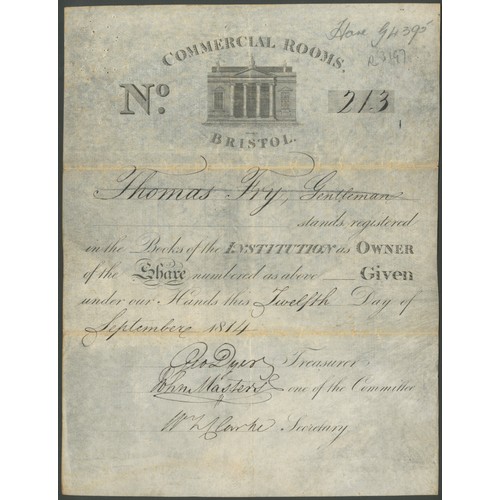 COMMERCIAL ROOMS,
No. 213
BRISTOL.
Thomas Fry, Gentleman
stands registered
in the Books of the INSTITUTION as OWNER
of the Share numbered as above Given
under our Hands this Twelfth Day of
September 1814
Geo Dyer Treasurer
John Masters one of the Committee
Clarke Secretary